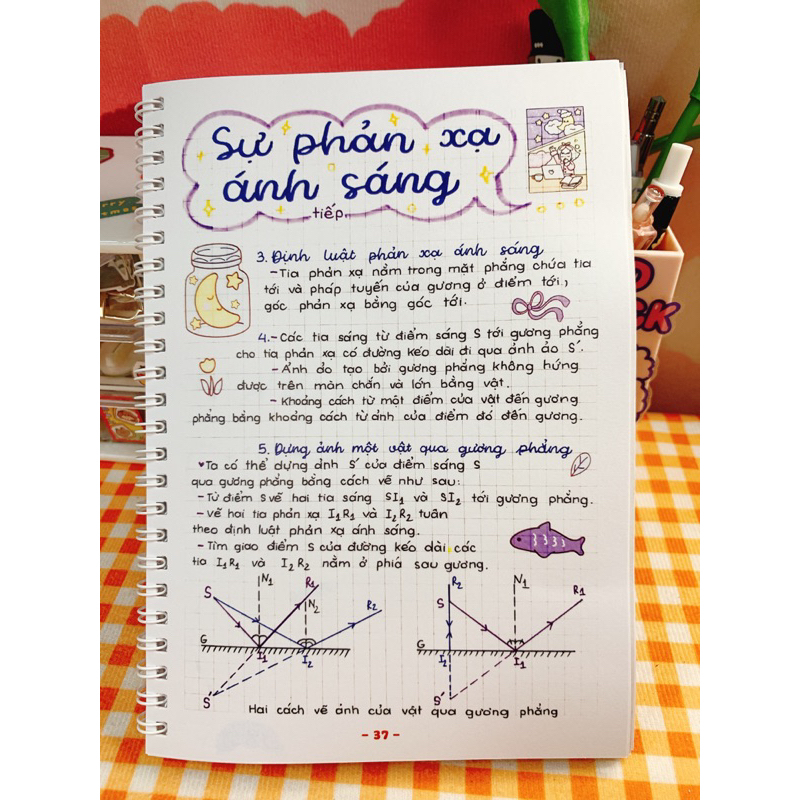 Sự phản xạ
ánh sáng
tiếp
3. Định luật phản xạ ánh sáng
- Tia phản xạ nằm trong mặt phẳng chứa tia
tới và pháp tuyến của gương ở điểm tới,
góc phản xạ bằng góc tới.
4. - Các tia sáng từ điểm sáng S tới gương phẳng
cho tia phản xạ có đường kéo dài đi qua ảnh ảo S'.
- Ảnh ảo tạo bởi gương phẳng không hứng
được trên màn chắn và lớn bằng vật.
- Khoảng cách từ một điểm của vật đến gương
phẳng bằng khoảng cách từ ảnh của điểm đó đến gương.
5. Dựng ảnh một vật qua gương phẳng
♥Ta có thể dựng ảnh S' của điểm sáng S
qua gương phẳng bằng cách vẽ như sau:
- Từ điểm S vẽ hai tia sáng SI1 và SI2 tới gương phẳng.
- Vẽ hai tia phản xạ I1R1 và I2R2 tuân
theo định luật phản xạ ánh sáng.
- Tìm giao điểm S của đường kéo dài các
tia I1R1 và I2R2 nằm ở phía sau gương.
S N1 R1 N2 R2
G I1 I2
S'
R2 N1 R1
S
G I2 I1
S'
Hai cách vẽ ảnh của vật qua gương phẳng
- 37 -